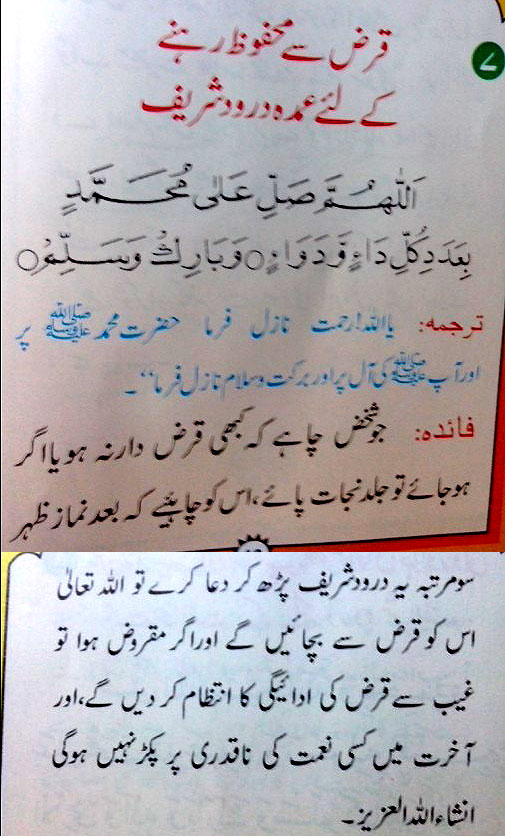 ۷
قرض سے محفوظ رہنے
کے لئے عمدہ درود شریف
اَللّٰهُمَّ صَلِّ عَلٰى مُحَمَّدٍ
بِعَدَدِ كُلِّ دَاءٍ وَّدَوَاءٍ○ وَبَارِكْ وَسَلِّمْ○
ترجمہ: یا اللہ! رحمت نازل فرما حضرت محمد ﷺ پر
اور آپ ﷺ کی آل پر اور برکت وسلام نازل فرما‘‘۔
فائدہ: جو شخص چاہے کہ کبھی قرض دار نہ ہو یا اگر
ہو جائے تو جلد نجات پائے، اس کو چاہئیے کہ بعد نماز ظہر
سو مرتبہ یہ درود شریف پڑھ کر دعا کرے تو اللہ تعالیٰ
اس کو قرض سے بچائیں گے اور اگر مقروض ہوا تو
غیب سے قرض کی ادائیگی کا انتظام کر دیں گے، اور
آخرت میں کسی نعمت کی ناقدری پر پکڑ نہیں ہوگی
انشاء اللہ العزیز۔